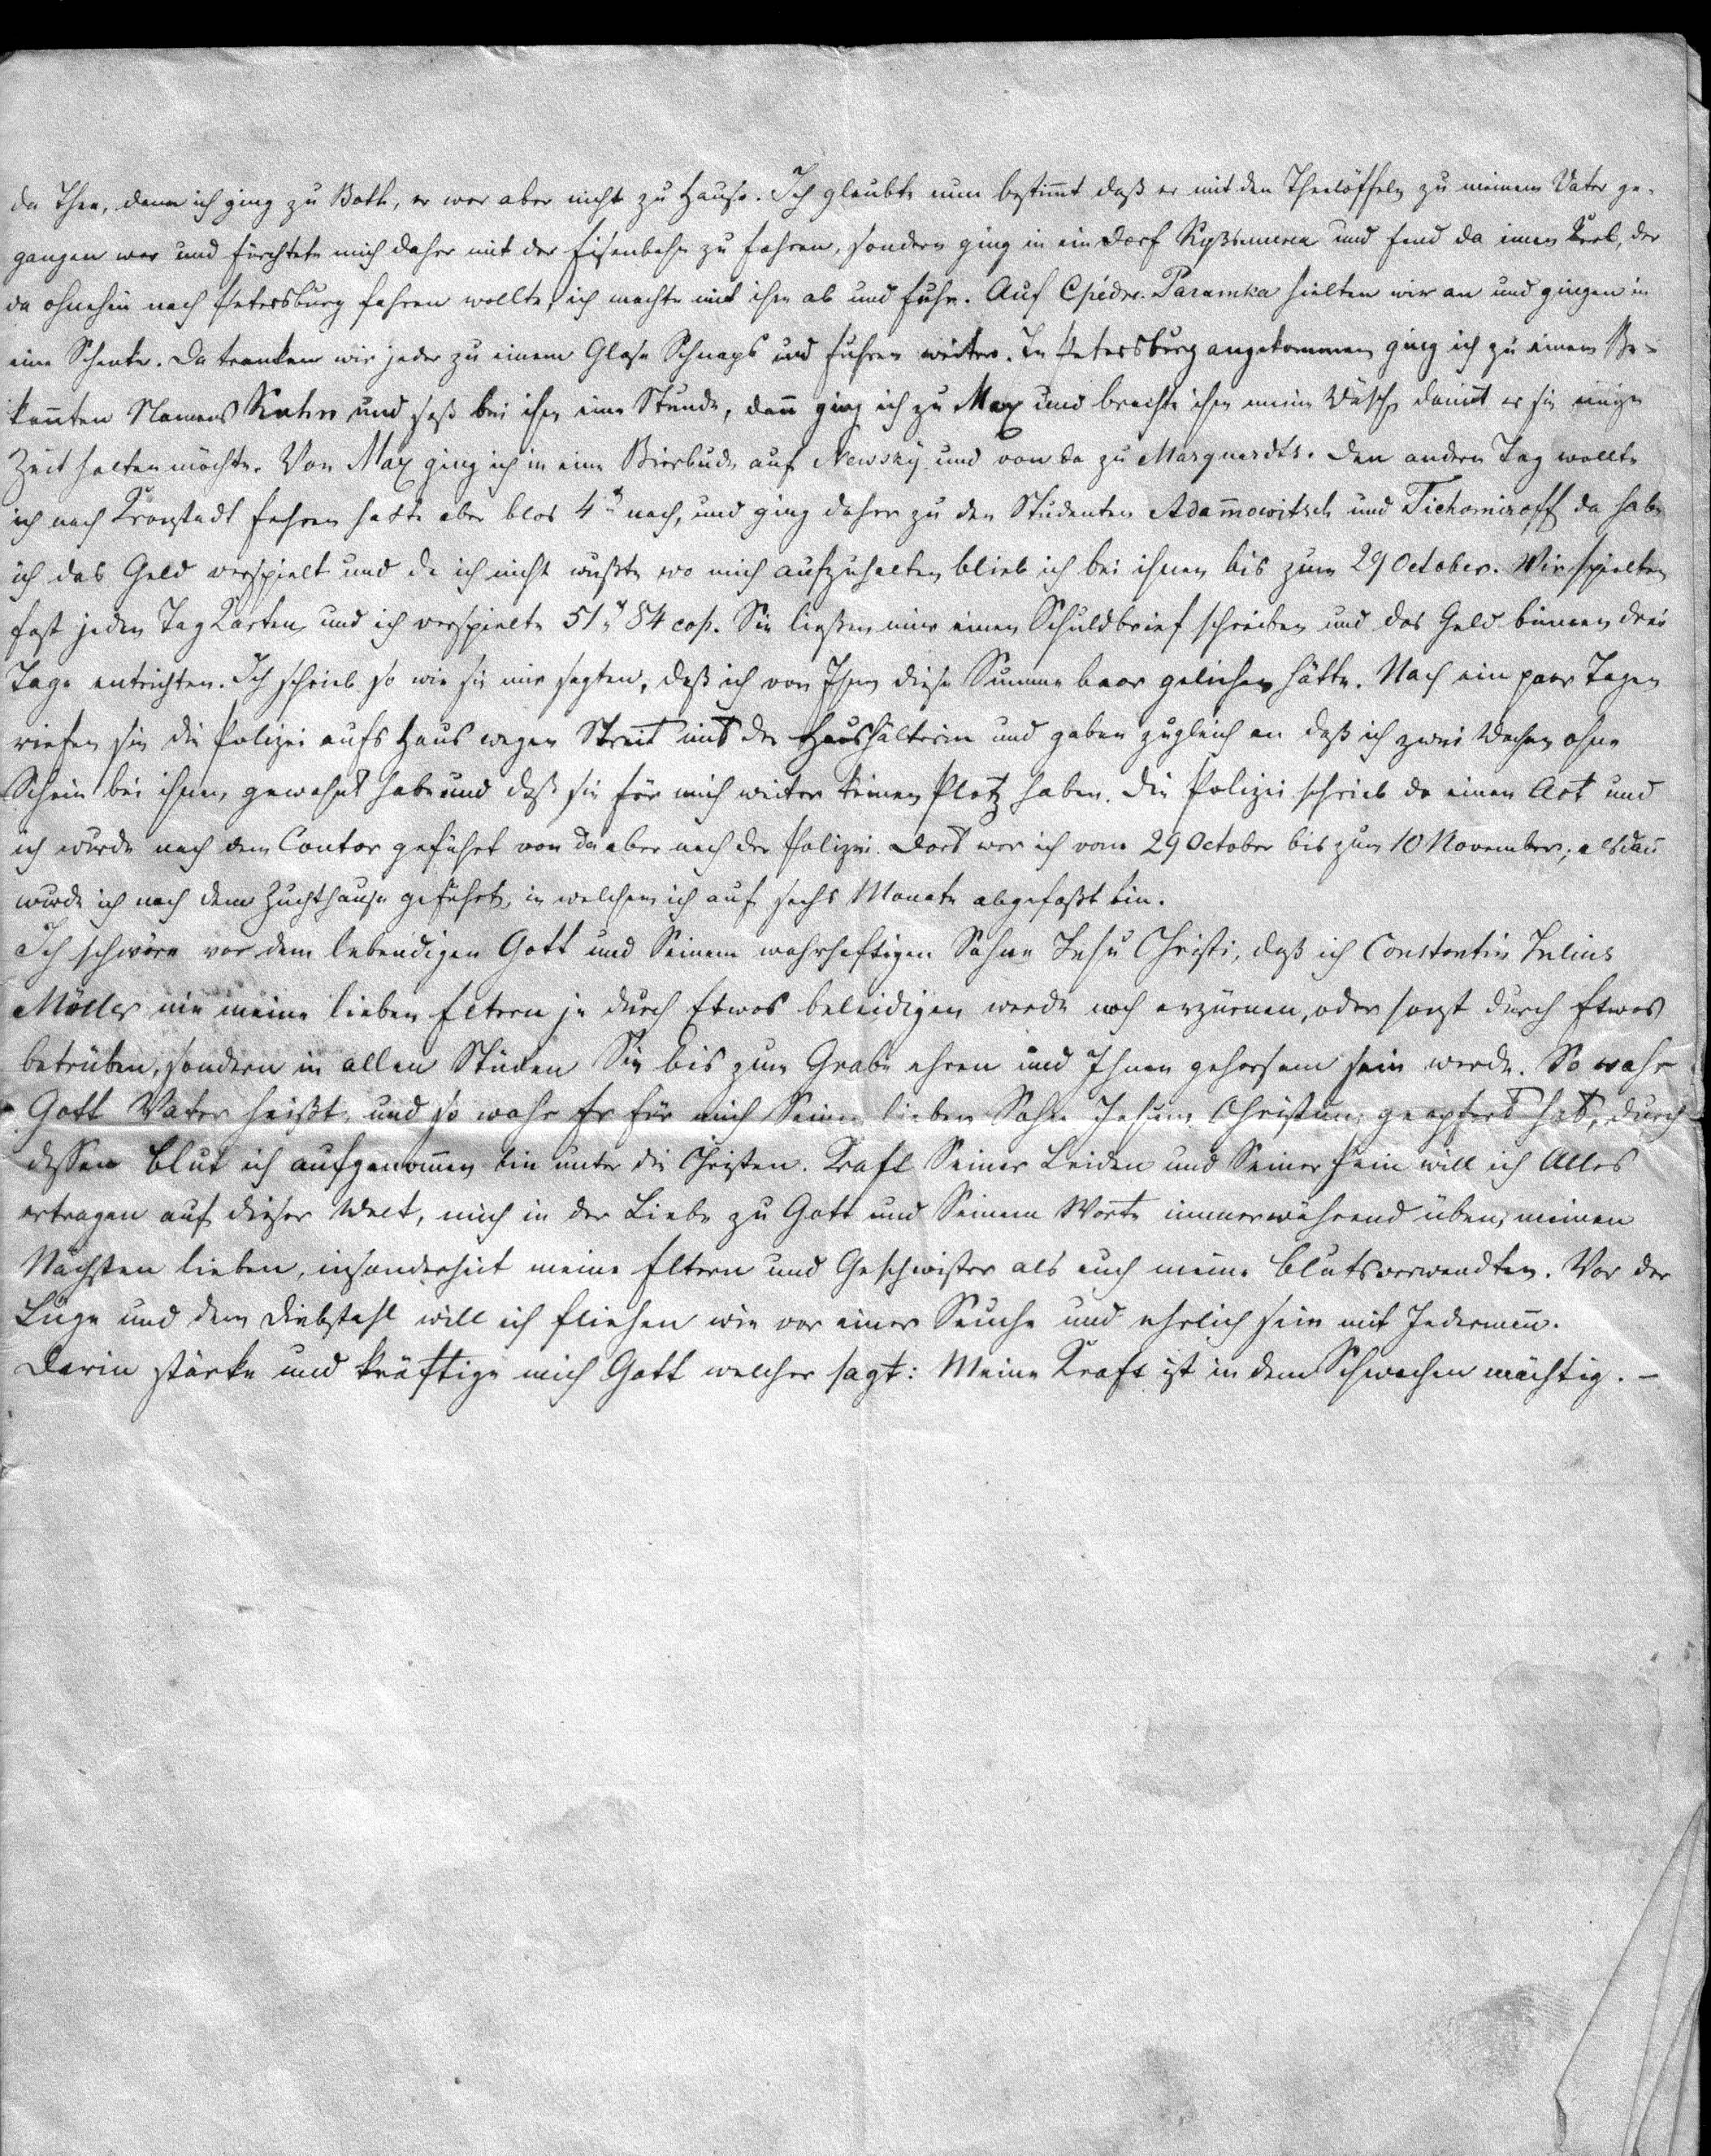 da Thee, dann ich ging zu Both, er war aber nicht zu Hause. Ich glaubte nun bestimt daß er mit den Theelöffeln zu meinem Vater ge-
gangen war und fürchtete mich daher mit der Eisenbahn zu fahren, sondern ging in ein Dorf und fand da einen Kerl, der
da ohnehin nach Petersburg fahren wollte, ich machte mit ihm ab und fuhr. Auf hielten wir an und gingen in
eine Schenke. Da tranken wir jeder zu einem Glase Schnaps und fuhren weiter. In Petersburg angekommen ging ich zu einem Be-
kannten Namens und saß bei ihm eine Stunde, dann ging ich zu Max und brachte ihm meine Wäsche damit er sie einige
Zeit halten möchte. Von Max ging ich in eine Bierbude auf Newsky und von da zu Marquardts. Den andern Tag wollte
ich nach Kronstadt fahren hatte aber blos 4 r noch, und ging daher zu den Studenten Adammowitsch und Tichomiroff da habe
ich das Geld verspielt und da ich nicht wußte wo mich aufzuhalten blieb ich bei ihnen bis zum 29 October. Wir spielten
fast jeden Tag Karten, und ich verspielte 51 r 84 cop. Sie ließen mir einen Schuldbrief schreiben und das Geld binnen drei
Tage entrichten. Ich schrieb so wie sie mir sagten, daß ich von Ihnen diese Summe baar geliehen hätte. Nach ein paar Tagen
riefen sie die Polizei aufs Haus wegen Streit mit der Haushälterin und gaben zugleich an daß ich zwei Wochen ohne
Schein bei ihnen gewohnt habe und daß sie für mich weiter keinen Platz haben. Die Polizei schrieb da einen Act und
ich wurde nach dem Contor geführt von da aber nach der Polizei. Dort war ich vom 29 October bis zum 10 November; alsdan̄
wurde ich nach dem Zuchthause geführt, in welchem ich auf sechs Monate abgefaßt bin.
Ich schwöre vor dem lebendigen Gott und Seinem wahrhaftigen Sohne Jesu Christi, daß ich Constantin Julius
Möller nie meine lieben Eltern je durch Etwas beleidigen werde noch erzürnen, oder sonst durch Etwas
betrüben, sondern in allen Stücken Sie bis zum Grabe ehren und Ihnen gehorsam sein werde. So wahr
Gott Vater heißt, und so wahr Er für mich Seinen lieben Sohn Jesum Christum geopfert hat, durch
dessen Blut ich aufgenom̄en bin unter die Christen. Kraft Seiner Leiden und Seiner Pein will ich Alles
ertragen auf dieser Welt, mich in der Liebe zu Gott und Seinem Worte immerwährend üben, meinen
Nächsten lieben, insonderheit meine Eltern und Geschwister als auch meine Blutsverwandten. Vor der
Lüge und dem Diebstahl will ich fliehen wie vor einer Seuche und ehrlich sein mit Jederman̄.
Darin stärke und kräftige mich Gott welcher sagt: Meine Kraft ist in dem Schwachen mächtig. –